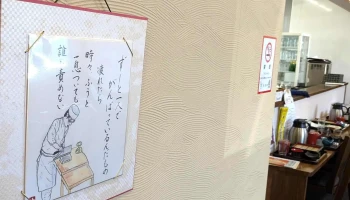 ずーと一人で
がんばっているんだもの
疲れたら
時々ふうと
一息ついても
誰も責めない